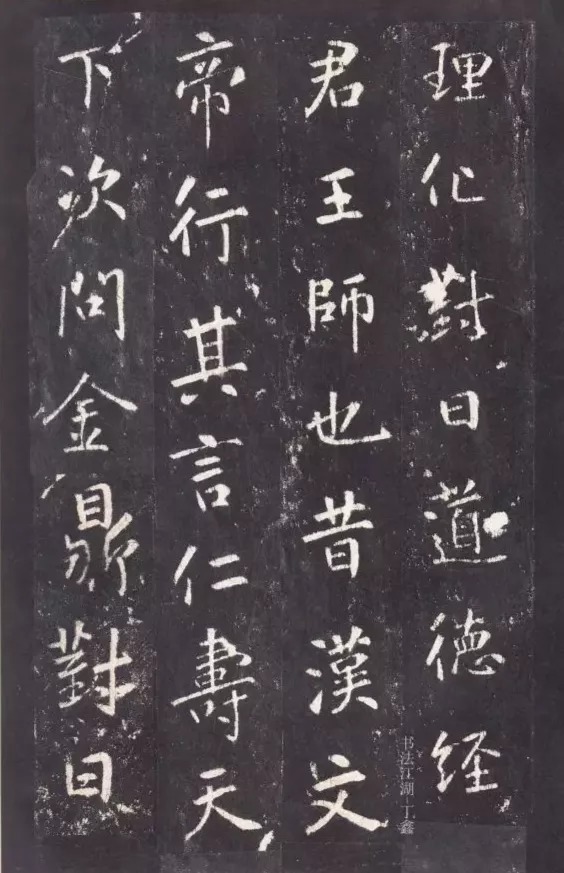 理化對曰道德經
君王師也昔漢文
帝行其言仁壽天
下次問金鼎對曰
书法江湖 丁鑫